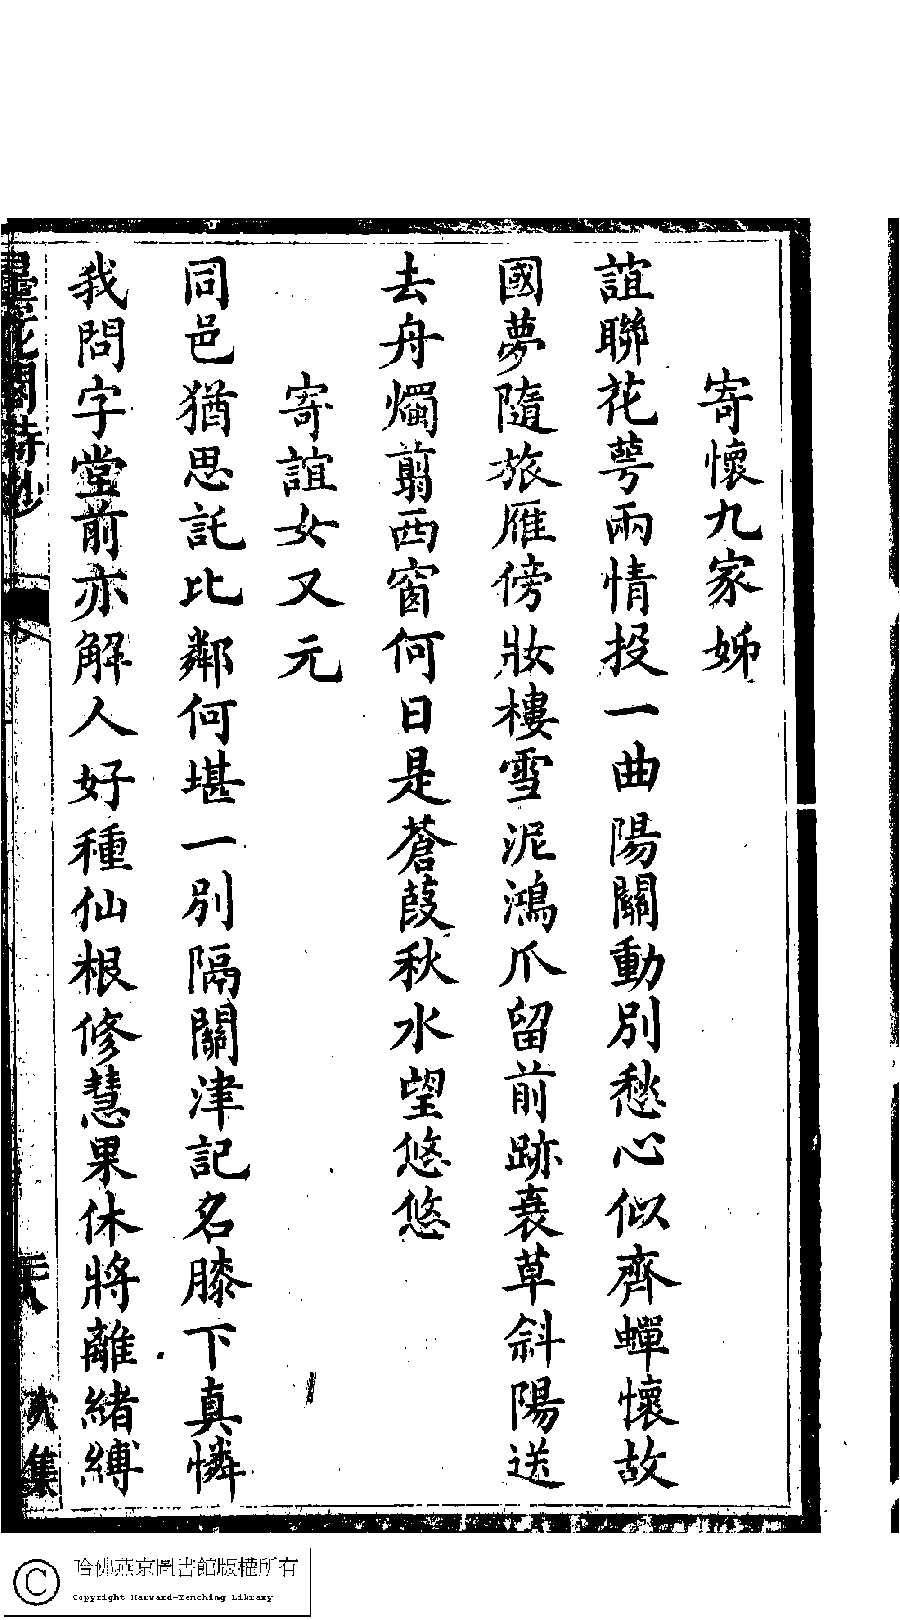 寄懷九家姊
誼聯花萼兩情投一曲陽關動別愁心似齊蟬懷故
國夢隨旅雁傍妝樓雪泥鴻爪留前跡衰草斜陽送
去舟燭翦西窗何日是蒼葭秋水望悠悠
寄誼女又元
同邑猶思託比鄰何堪一別隔關津記名膝下真憐
我問字堂前亦解人好種仙根修慧果休將離緒縛
曇花閣詩鈔
哈佛燕京圖書館版權所有
Copyright Harvard-Yenching Library